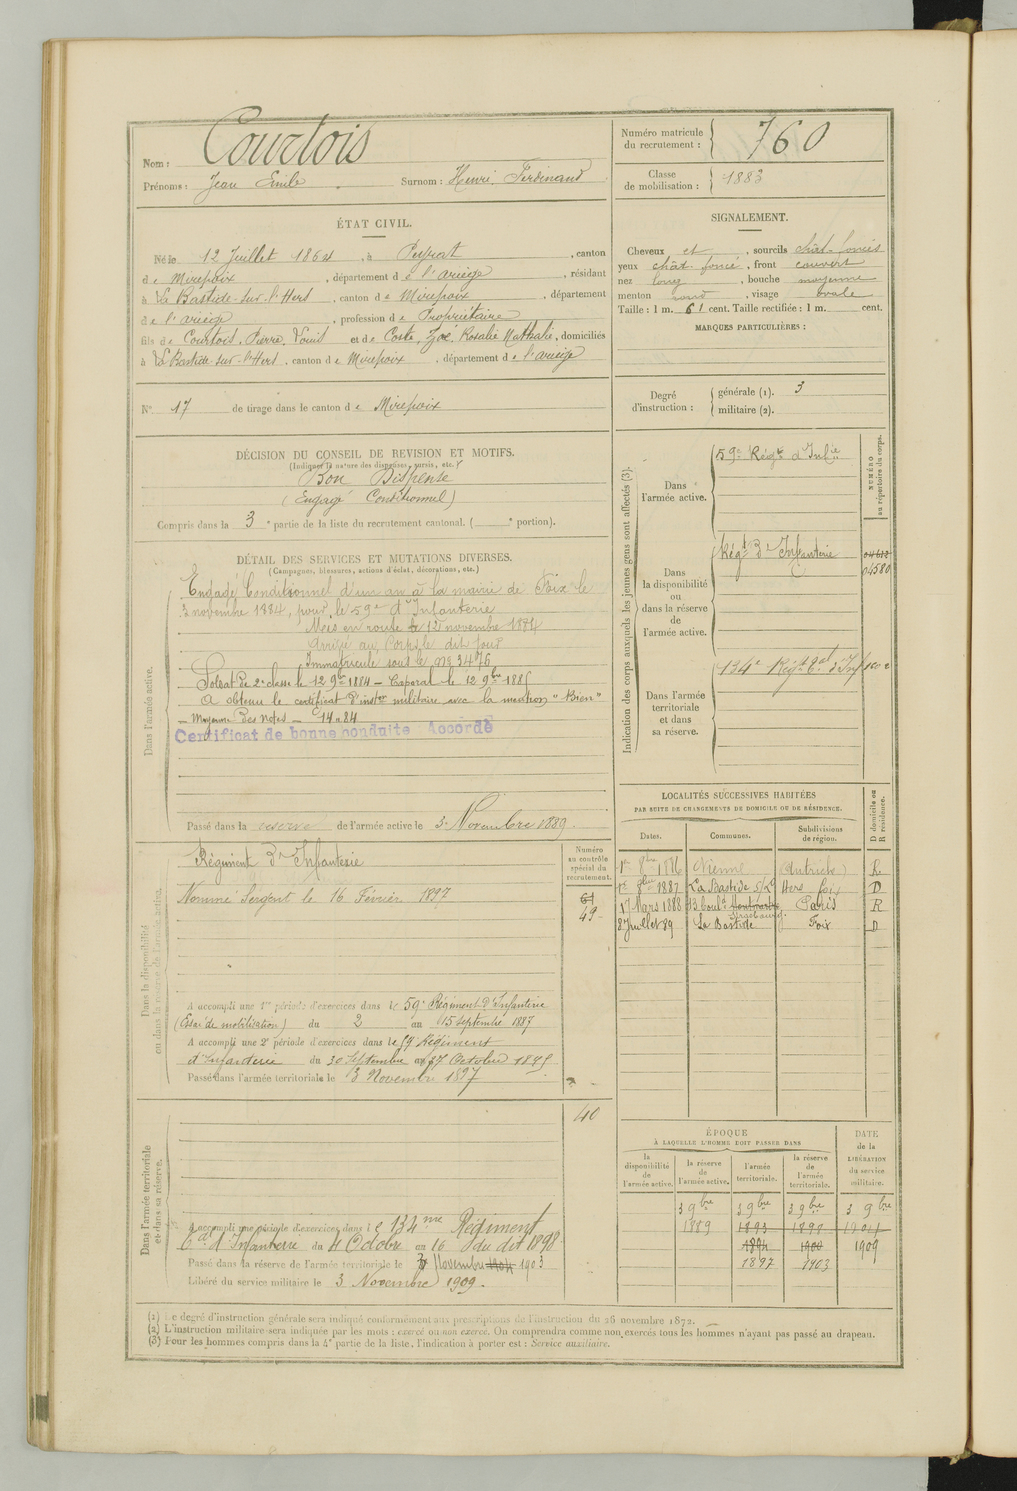 Nom : Courtois
Prénoms : Jean Emile Surnom : Henri Ferdinand
Numéro matricule du recrutement : 760
Classe de mobilisation : 1883
ÉTAT CIVIL.
Né le 12 Juillet 1864, à Peyrat, canton
de Mirepoix, département de l'ariège, résidant
à La Bastide-sur-l'Hers, canton de Mirepoix, département
de l'ariège, profession de Propriétaire
fils de Courtois, Pierre, Louis et de Coste, Zoé, Rosalie Nathalie, domiciliés
à La Bastide-sur-l'Hers, canton de Mirepoix, département de l'ariège
N° 17 de tirage dans le canton de Mirepoix
SIGNALEMENT.
Cheveux et, sourcils chât-foncés
yeux chât foncé, front couvert
nez long, bouche moyenne
menton rond, visage ovale
Taille : 1 m. 61 cent. Taille rectifiée : 1 m. cent.
MARQUES PARTICULIÈRES :
Degré d'instruction : générale (1). 3
militaire (2).
DÉCISION DU CONSEIL DE REVISION ET MOTIFS.
(Indiquer la nature des dispenses, sursis, etc.)
Bon Dispensé
(Engagé Conditionnel)
Compris dans la 3e partie de la liste du recrutement cantonal. ( e portion).
DÉTAIL DES SERVICES ET MUTATIONS DIVERSES.
(Campagnes, blessures, actions d'éclat, décorations, etc.)
Dans l'armée active.
Engagé Conditionnel d'un an à la mairie de Foix le
3 novembre 1884, pour le 59e d'Infanterie
Mis en route le 12 novembre 1884
Arrivé au Corps le dit jour
Immatriculé sous le No 3476
Soldat de 2e classe le 12 9bre 1884 - Caporal le 12 9bre 1885
A obtenu le certificat d'inston militaire avec la mention "Bien"
- Moyenne des notes - 14.84
Certificat de bonne conduite Accordé
Passé dans la réserve de l'armée active le 3 Novembre 1889.
Dans la disponibilité ou dans la réserve de l'armée active.
Numéro au contrôle spécial du recrutement.
Régiment d'Infanterie
Nommé Sergent le 16 Février 1897
61
49
A accompli une 1re période d'exercices dans le 59e Régiment d'Infanterie
(Essai de mobilisation) du 2 au 15 Septembre 1887
A accompli une 2e période d'exercices dans le 59 Régiment
d'Infanterie du 30 Septembre au 27 Octobre 1895
Passé dans l'armée territoriale le 3 Novembre 1897
Dans l'armée territoriale et dans sa réserve.
40
A accompli une période d'exercices dans le 134me Régiment
tal d'Infanterie du 4 Octobre au 16 du dit 1898
Passé dans la réserve de l'armée territoriale le 3 Novembre 1904 1903
Libéré du service militaire le 3 Novembre 1909.
Indication des corps auxquels les jeunes gens sont affectés (3).
NUMÉRO au répertoire du corps.
Dans l'armée active.
59e Régt d'Infie
Dans la disponibilité ou dans la réserve de l'armée active.
Régt d'Infanterie
04580
Dans l'armée territoriale et dans sa réserve.
134e Régt tal d'Infie
LOCALITÉS SUCCESSIVES HABITÉES
PAR SUITE DE CHANGEMENTS DE DOMICILE OU DE RÉSIDENCE.
Dates. Communes. Subdivisions de région. D domicile ou R résidence.
1er 8bre 1886 Vienne (Autriche) R
1er 9bre 1887 La Bastide s/l'Hers Foix D
17 Mars 1888 13 boul. Montmartre Strasbourg. Paris R
8 Juillet 89 La Bastide Foix D
ÉPOQUE
À LAQUELLE L'HOMME DOIT PASSER DANS
DATE de la LIBÉRATION du service militaire.
la disponibilité de l'armée active. la réserve de l'armée active. l'armée territoriale. la réserve de l'armée territoriale.
3 9bre 3 9bre 3 9bre 3 9bre
1889 1893 1899 1904
1894 1900 1909
1897 1903
(1) Le degré d'instruction générale sera indiqué conformément aux prescriptions de l'instruction du 26 novembre 1872.
(2) L'instruction militaire sera indiquée par les mots : exercé ou non exercé. On comprendra comme non exercés tous les hommes n'ayant pas passé au drapeau.
(3) Pour les hommes compris dans la 4e partie de la liste, l'indication à porter est : Service auxiliaire.